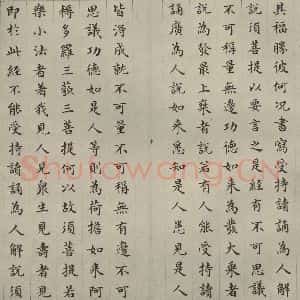 其福勝彼何況書寫受持讀誦為人解
說須菩提以要言之是經有不可思議
不可稱量無邊功德如來為發大乘者
說為發最上乘者說若有人能受持讀
誦廣為人說如來悉知是人悉見是人
皆得成就不可量不可稱無有邊不可
思議功德如是人等則為荷擔如來阿
耨多羅三藐三菩提何以故須菩提若
樂小法者著我見人見眾生見壽者見
即於此經不能受持讀誦為人解說須
Shufawang.CN